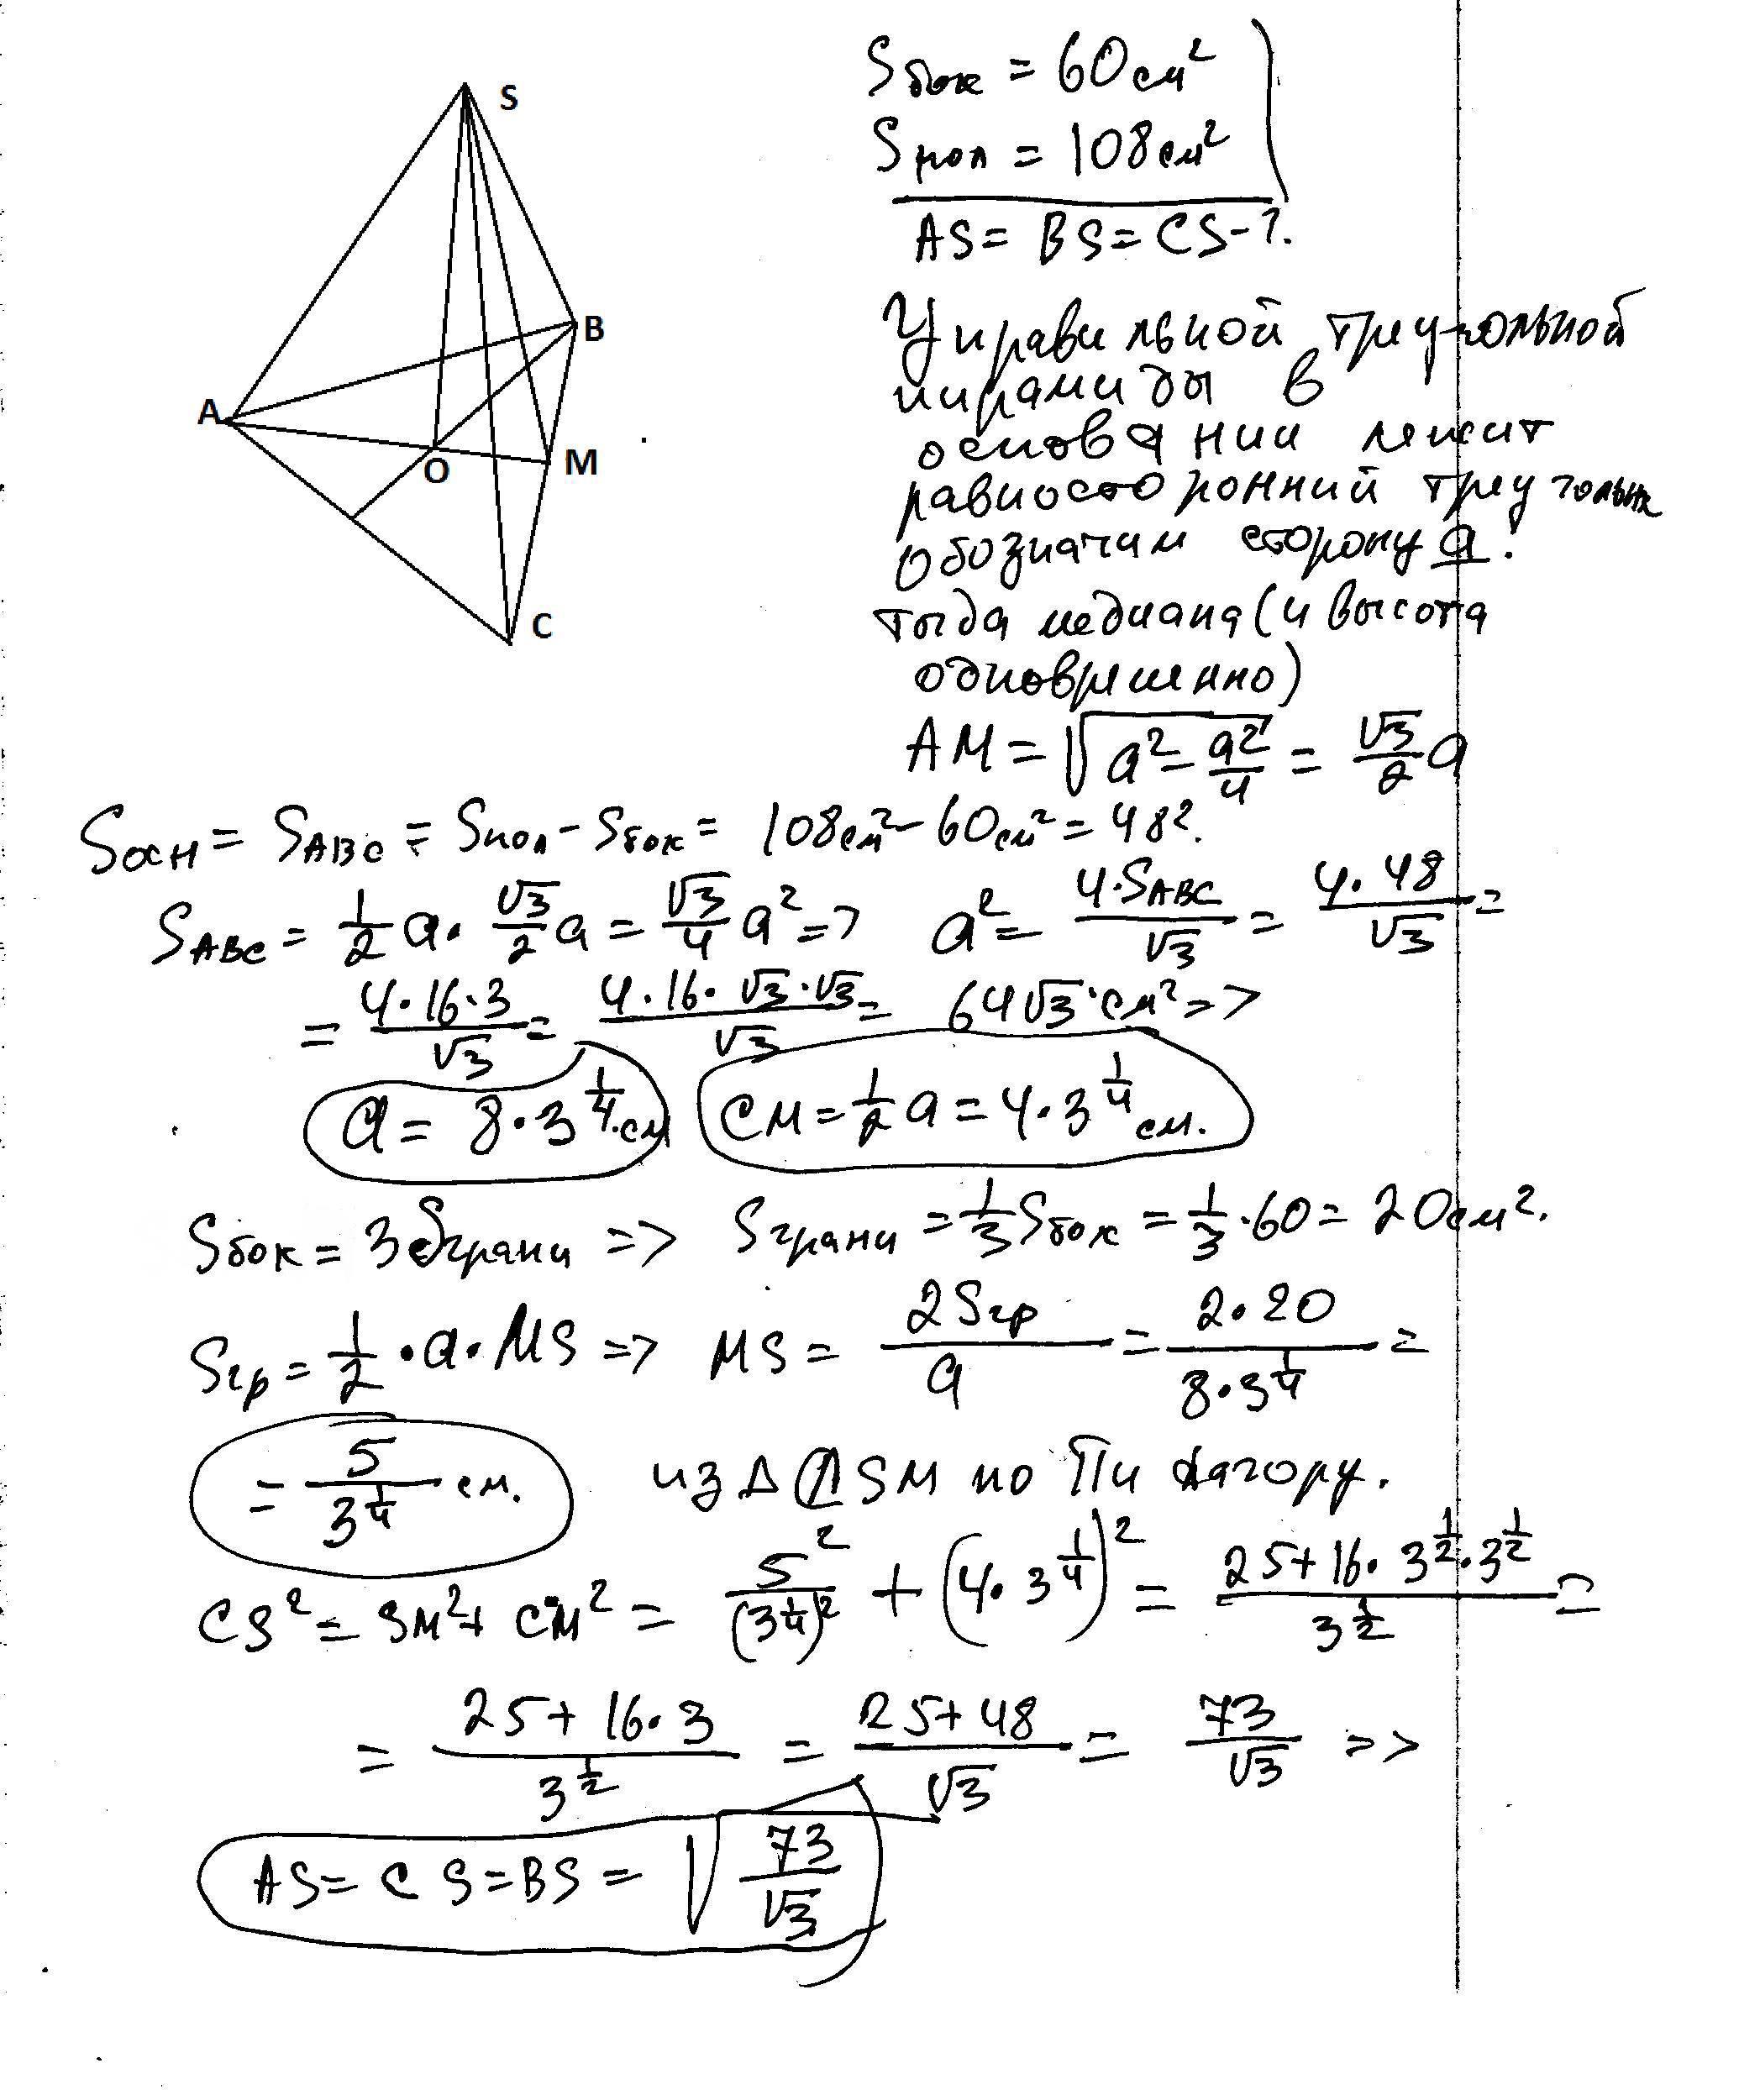 S
B
A
O
M
C
Sбок = 60 см²
Sпол = 108 см²
AS = BS = CS - ?.
У правильной треугольной
пирамиды в
основании лежит
равносторонний треугольник
Обозначим сторону a.
тогда медиана (и высота
одновременно)
AM = √(a² - a²/4) = √3/2 a
Sосн = SABC = Sпол - Sбок = 108 см² - 60 см² = 48².
SABC = 1/2 a · √3/2 a = √3/4 a² => a² = 4·SABC/√3 = 4·48/√3 =
= 4·16·3/√3 = 4·16·√3·√3/√3 = 64√3·см² =>
a = 8·3^(1/4)·см CM = 1/2 a = 4·3^(1/4) см.
Sбок = 3Sграни => Sграни = 1/3 Sбок = 1/3·60 = 20 см².
Sгр = 1/2 · a · MS => MS = 2Sгр/a = 2·20/(8·3^(1/4)) =
= 5/3^(1/4) см. из Δ CSM по Пифагору.
CS² = SM² + CM² = 5²/(3^(1/4))² + (4·3^(1/4))² = (25+16·3^(1/2)·3^(1/2))/3^(1/2) =
= (25+16·3)/3^(1/2) = (25+48)/√3 = 73/√3 =>
AS = CS = BS = √(73/√3)